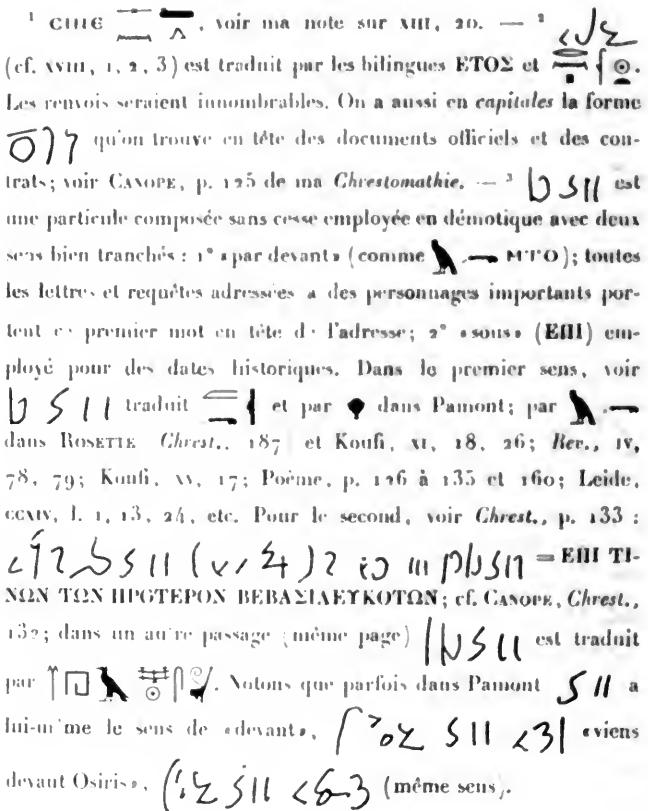 ¹ ⲥⲓⲛⲉ , voir ma note sur XIII, 20. — ²
(cf. XVIII, 1, 2, 3) est traduit par les bilingues ΕΤΟΣ et .
Les renvois seraient innombrables. On a aussi en capitales la forme
qu'on trouve en tête des documents officiels et des con-
trats; voir CANOPE, p. 125 de ma Chrestomathie. — ³ est
une particule composée sans cesse employée en démotique avec deux
sens bien tranchés : 1° «par devant» (comme ⲙⲧⲟ); toutes
les lettres et requêtes adressées a des personnages importants por-
tent ce premier mot en tête de l'adresse; 2° «sous» (ΕΠΙ) em-
ployé pour des dates historiques. Dans le premier sens, voir
traduit et par dans Pamont; par
dans ROSETTE Chrest., 187 et Koufi, XI, 18, 26; Rev., IV,
78, 79; Koufi, XV, 17; Poème, p. 126 à 135 et 160; Leide,
CCXIV, l. 1, 13, 24, etc. Pour le second, voir Chrest., p. 133 :
= ΕΠΙ ΤΙ-
ΝΩΝ ΤΩΝ ΠΡΟΤΕΡΟΝ ΒΕΒΑΣΙΛΕΥΚΟΤΩΝ; cf. CANOPE, Chrest.,
132; dans un autre passage (même page) est traduit
par . Notons que parfois dans Pamont a
lui-même le sens de «devant», «viens
devant Osiris», (même sens).